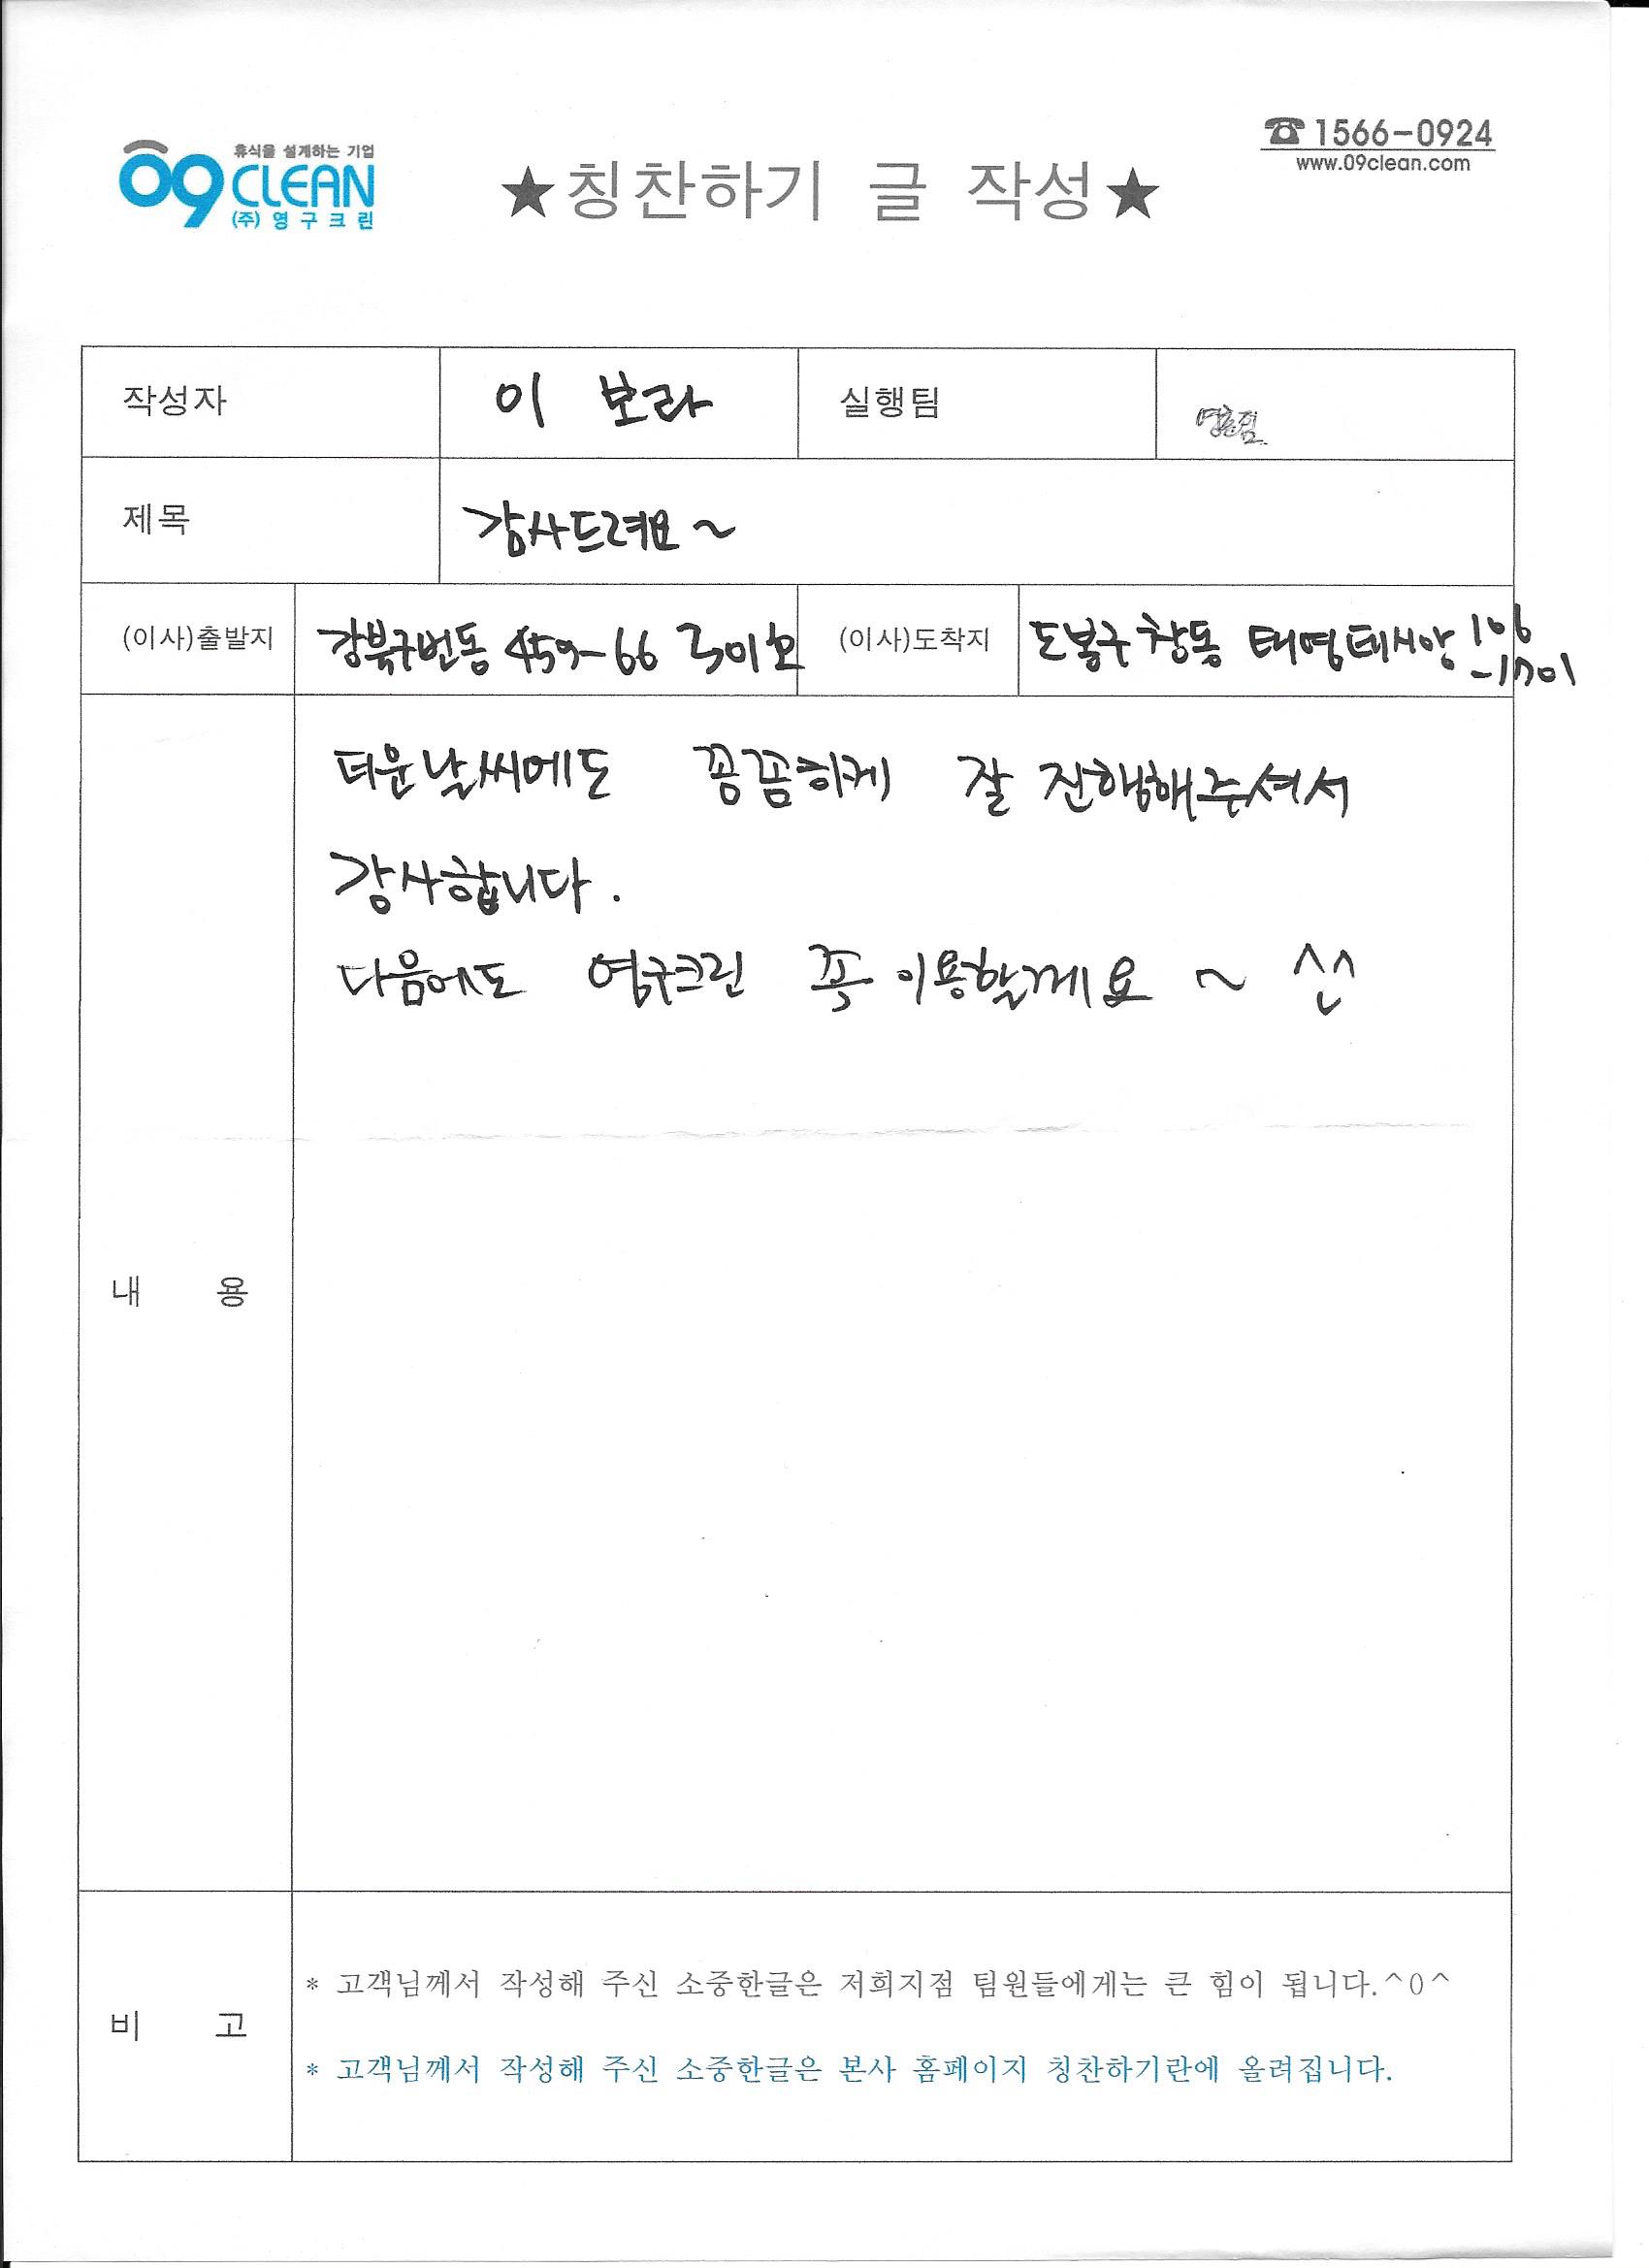 휴식을 설계하는 기업
09 CLEAN
(주)영구크린
★칭찬하기 글 작성★
☎1566-0924
www.09clean.com
작성자 이 보라 실행팀
제목 감사드려요~
(이사)출발지 강북구번동 459-66 301호 (이사)도착지 도봉구 창동 태영데시앙 106
-1701
더운날씨에도 꼼꼼하게 잘 진행해주셔서
감사합니다.
다음에도 영구크린 꼭 이용할께요 ~ ^^
내 용
비 고
* 고객님께서 작성해 주신 소중한글은 저희지점 팀원들에게는 큰 힘이 됩니다.^0^
* 고객님께서 작성해 주신 소중한글은 본사 홈페이지 칭찬하기란에 올려집니다.